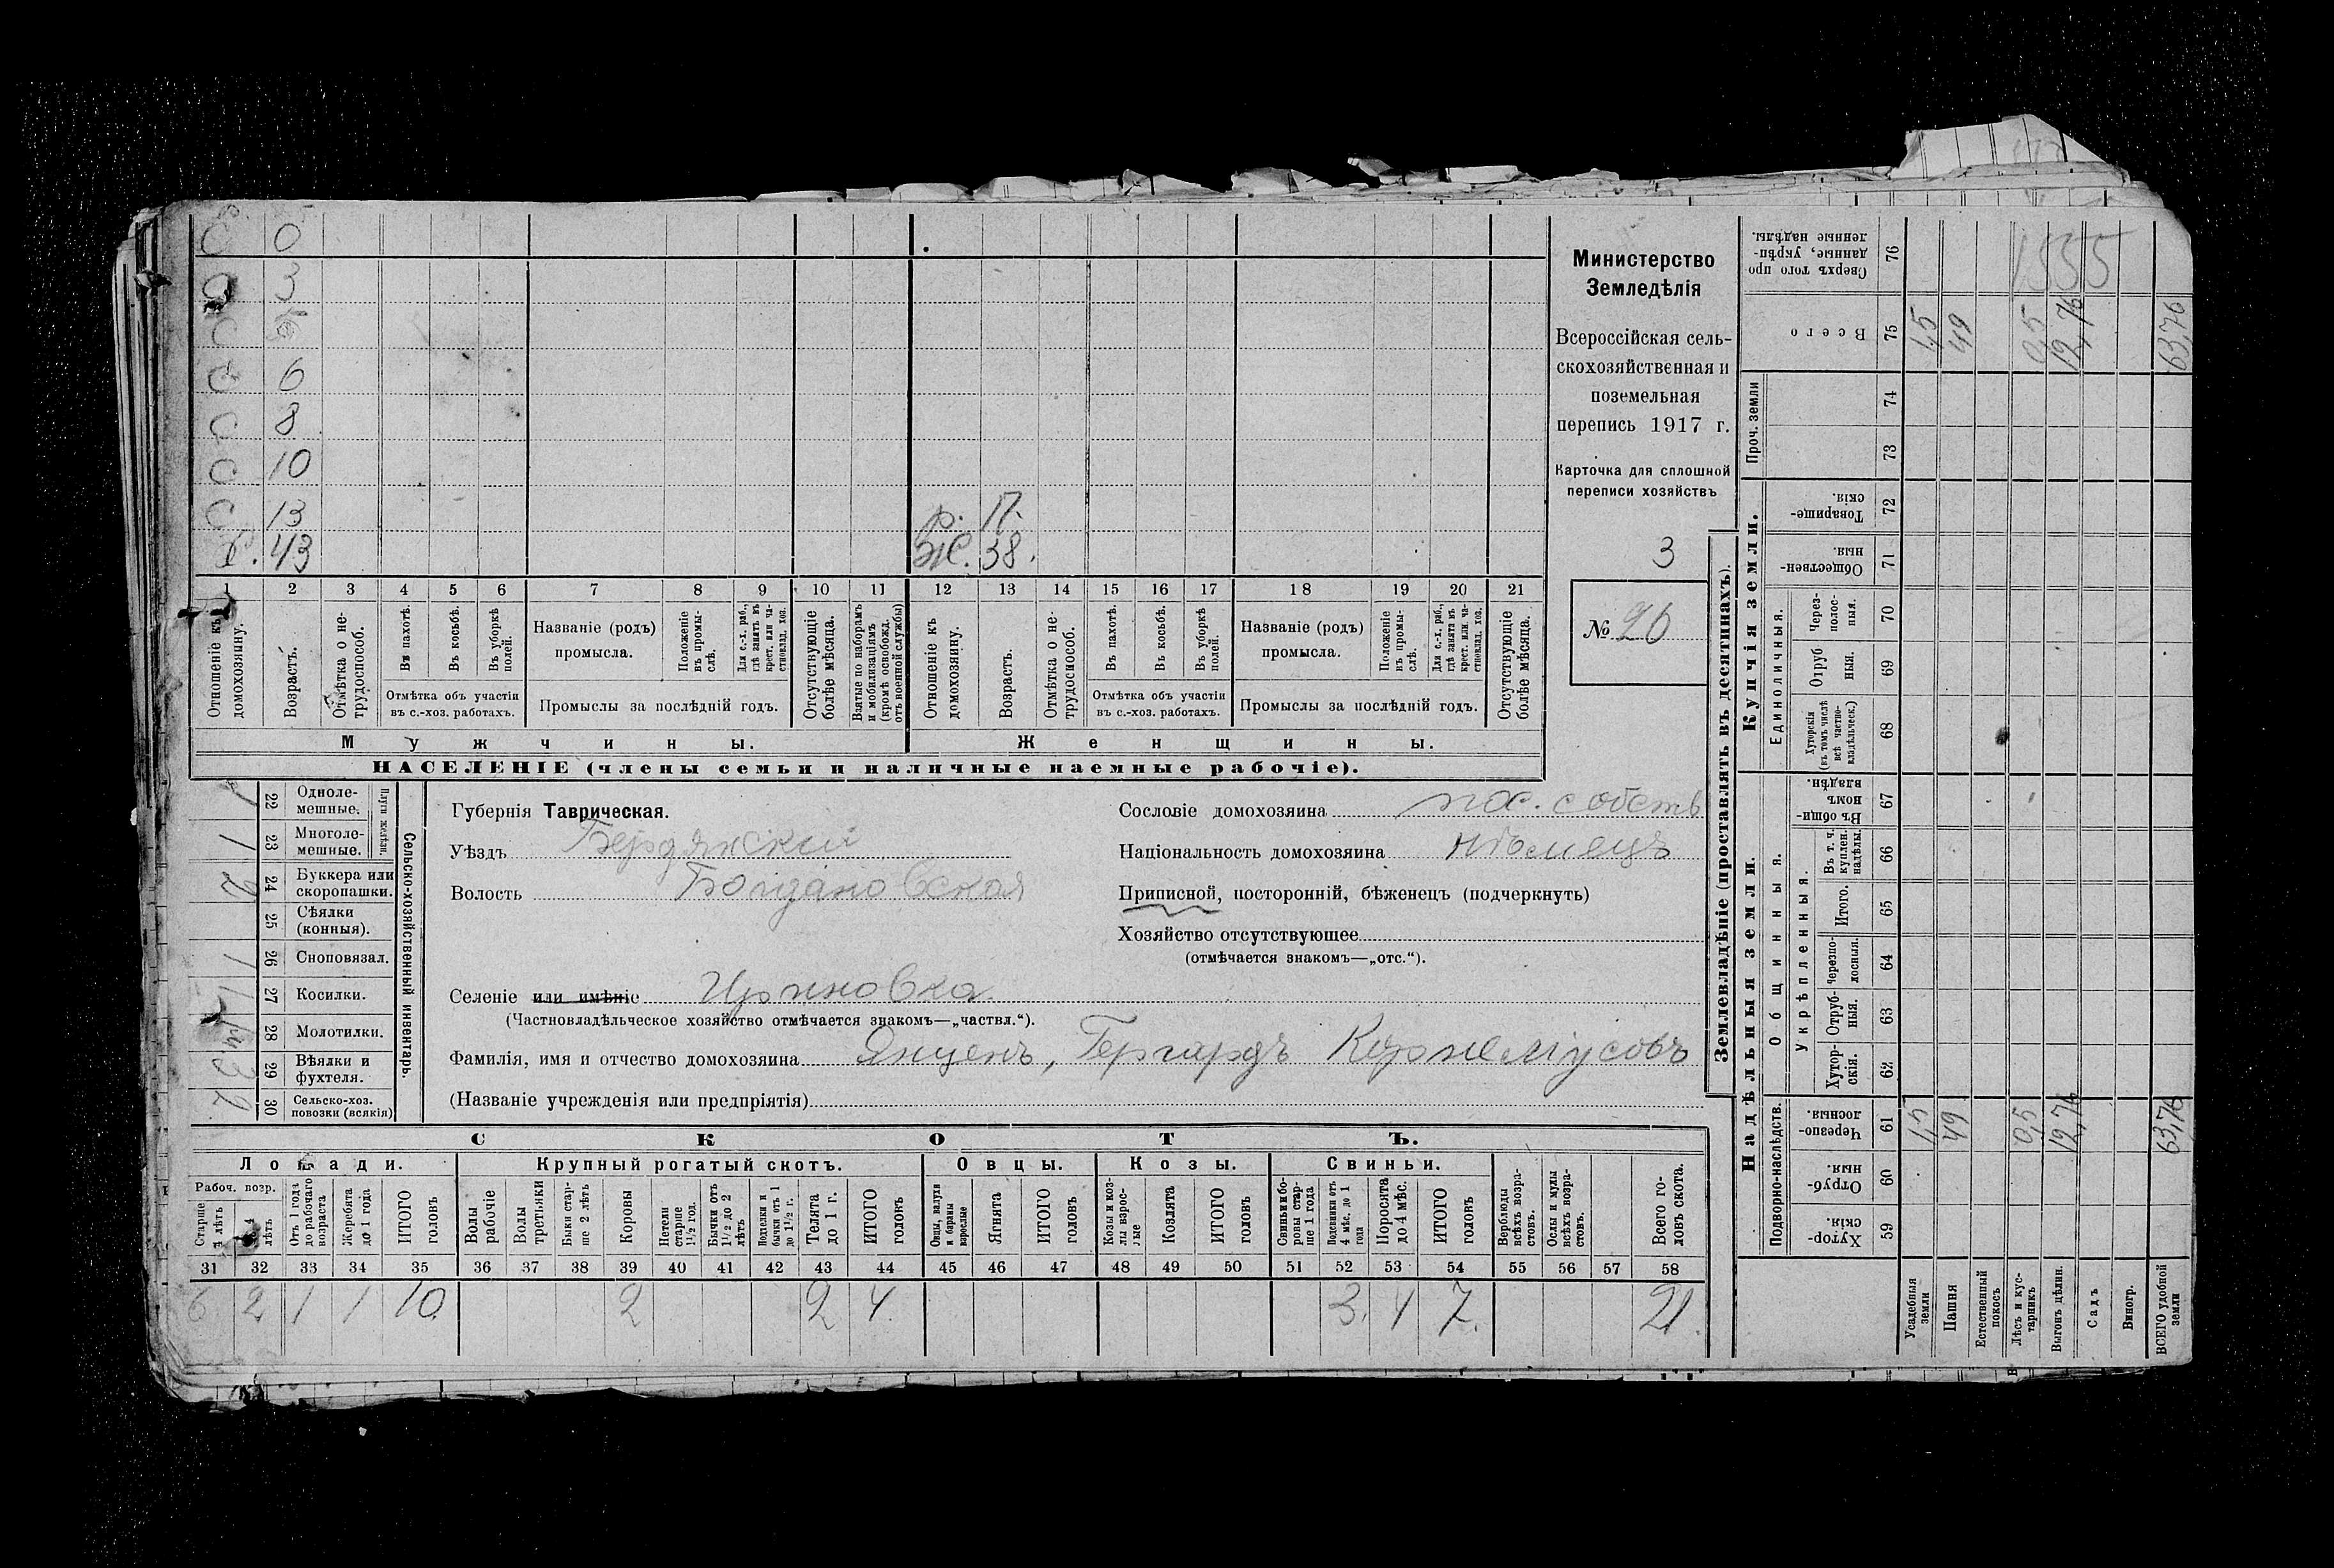 С 0
С 3
С
С 6
С 8
С 10
С 13 р. 17.
Х. 43 Ж. 38.
1 2 3 4 5 6 7 8 9 10 11 12 13 14 15 16 17 18 19 20 21
Отношеніе къ домохозяину.
Возрастъ.
Отмѣтка о нетрудоспособ.
Въ пахотѣ.
Въ косьбѣ.
Въ уборкѣ полей.
Отмѣтка объ участіи въ с.-хоз. работахъ.
Названіе (родъ) промысла.
Положеніе въ промыслѣ.
Для с.-х. раб., гдѣ занятъ въ крест. или частновлад. хоз.
Промыслы за послѣдній годъ.
Отсутствующіе болѣе мѣсяца.
Взятые по наборамъ и мобилизаціямъ (кромѣ освобожд. отъ военной службы)
Отношеніе къ домохозяину.
Возрастъ.
Отмѣтка о нетрудоспособ.
Въ пахотѣ.
Въ косьбѣ.
Въ уборкѣ полей.
Отмѣтка объ участіи въ с.-хоз. работахъ.
Названіе (родъ) промысла.
Положеніе въ промыслѣ.
Для с.-х. раб., гдѣ занята въ крест. или частновлад. хоз.
Промыслы за послѣдній годъ.
Отсутствующіе болѣе мѣсяца.
Мужчины. Женщины.
НАСЕЛЕНІЕ (члены семьи и наличные наемные рабочіе).
Министерство
Земледѣлія
Всероссійская сель-
скохозяйственная и
поземельная
перепись 1917 г.
Карточка для сплошной
переписи хозяйствъ
3
№ 26
Сельско-хозяйственный инвентарь.
Плуги желѣзн.
22 Однолемешные. 1
23 Многолемешные. 1
24 Буккера или скоропашки. 2
25 Сѣялки (конныя).
26 Сноповязал. 1
27 Косилки. 1
28 Молотилки.
29 Вѣялки и фухтеля.
30 Сельско-хоз. повозки (всякія) 2
Губернія Таврическая.
Уѣздъ Бердянскій
Волость Богдановская
Селеніе или имѣніе
(Частновладѣльческое хозяйство отмѣчается знакомъ—„частвл.“).
Фамилія, имя и отчество домохозяина Янценъ, Гергардъ Корнеліусовъ
(Названіе учрежденія или предпріятія)
Сословіе домохозяина пос. собств
Національность домохозяина нѣмецъ
Приписной, посторонній, бѣженецъ (подчеркнуть)
Хозяйство отсутствующее
(отмѣчается знакомъ—„отс.“).
СКОТЪ.
Лошади. Крупный рогатый скотъ. Овцы. Козы. Свиньи.
Рабоч. возр.
Старше 4 лѣтъ
лѣтъ
Отъ 1 года до рабочаго возраста
Жеребята до 1 года
ИТОГО головъ
Волы рабочіе
Волы третьяки
Быки старше 2 лѣтъ
Коровы
Нетели старше 1½ год.
Бычки отъ 1½ до 2 лѣтъ
Подтелки и бычки отъ 1 до 1½ г.
Телята до 1 г.
ИТОГО головъ
Овцы, валухи и бараны взрослые
Ягнята
ИТОГО головъ
Козы и козлы взрослые
Козлята
ИТОГО головъ
Свиньи и боровы старше 1 года
Подсвинки отъ 4 мѣс. до 1 года
Поросята до 4 мѣс.
ИТОГО головъ
Верблюды всѣхъ возрастовъ.
Ослы и мулы всѣхъ возрастовъ.
Всего головъ скота.
31 32 33 34 35 36 37 38 39 40 41 42 43 44 45 46 47 48 49 50 51 52 53 54 55 56 57 58
6 2 1 1 10 2 2 4 3 4 7 21
Землевладѣніе (проставлять въ десятинахъ).
Надѣльныя земли. Купчія земли. Проч. земли
Подворно-наслѣдств. Общинныя. Укрѣпленныя. Единоличныя.
59 Хуторскія.
60 Отрубныя.
61 Черезполосныя.
62 Хуторскія.
63 Отрубныя.
64 Черезполосныя.
65 Итого.
66 Въ т. ч. куплен. надѣлы.
67 Въ общинномъ владѣн.
68 Хуторскія (въ томъ числѣ всѣ частновладѣльческ.)
69 Отрубныя.
70 Черезполосныя.
71 Общественныя.
72 Товарищескія.
73 74
75 Всего
76 Сверхъ того проданные, укрѣпленные надѣлы.
1555
Усадебныя земли 1,5 1,5
Пашня 49 49
Естественный покосъ
Лѣсъ и кустарникъ 0,5 0,5
Выгонъ цѣлин. 12,76 12,76
Садъ
Виногр.
ВСЕГО удобной земли 63,76 63,76